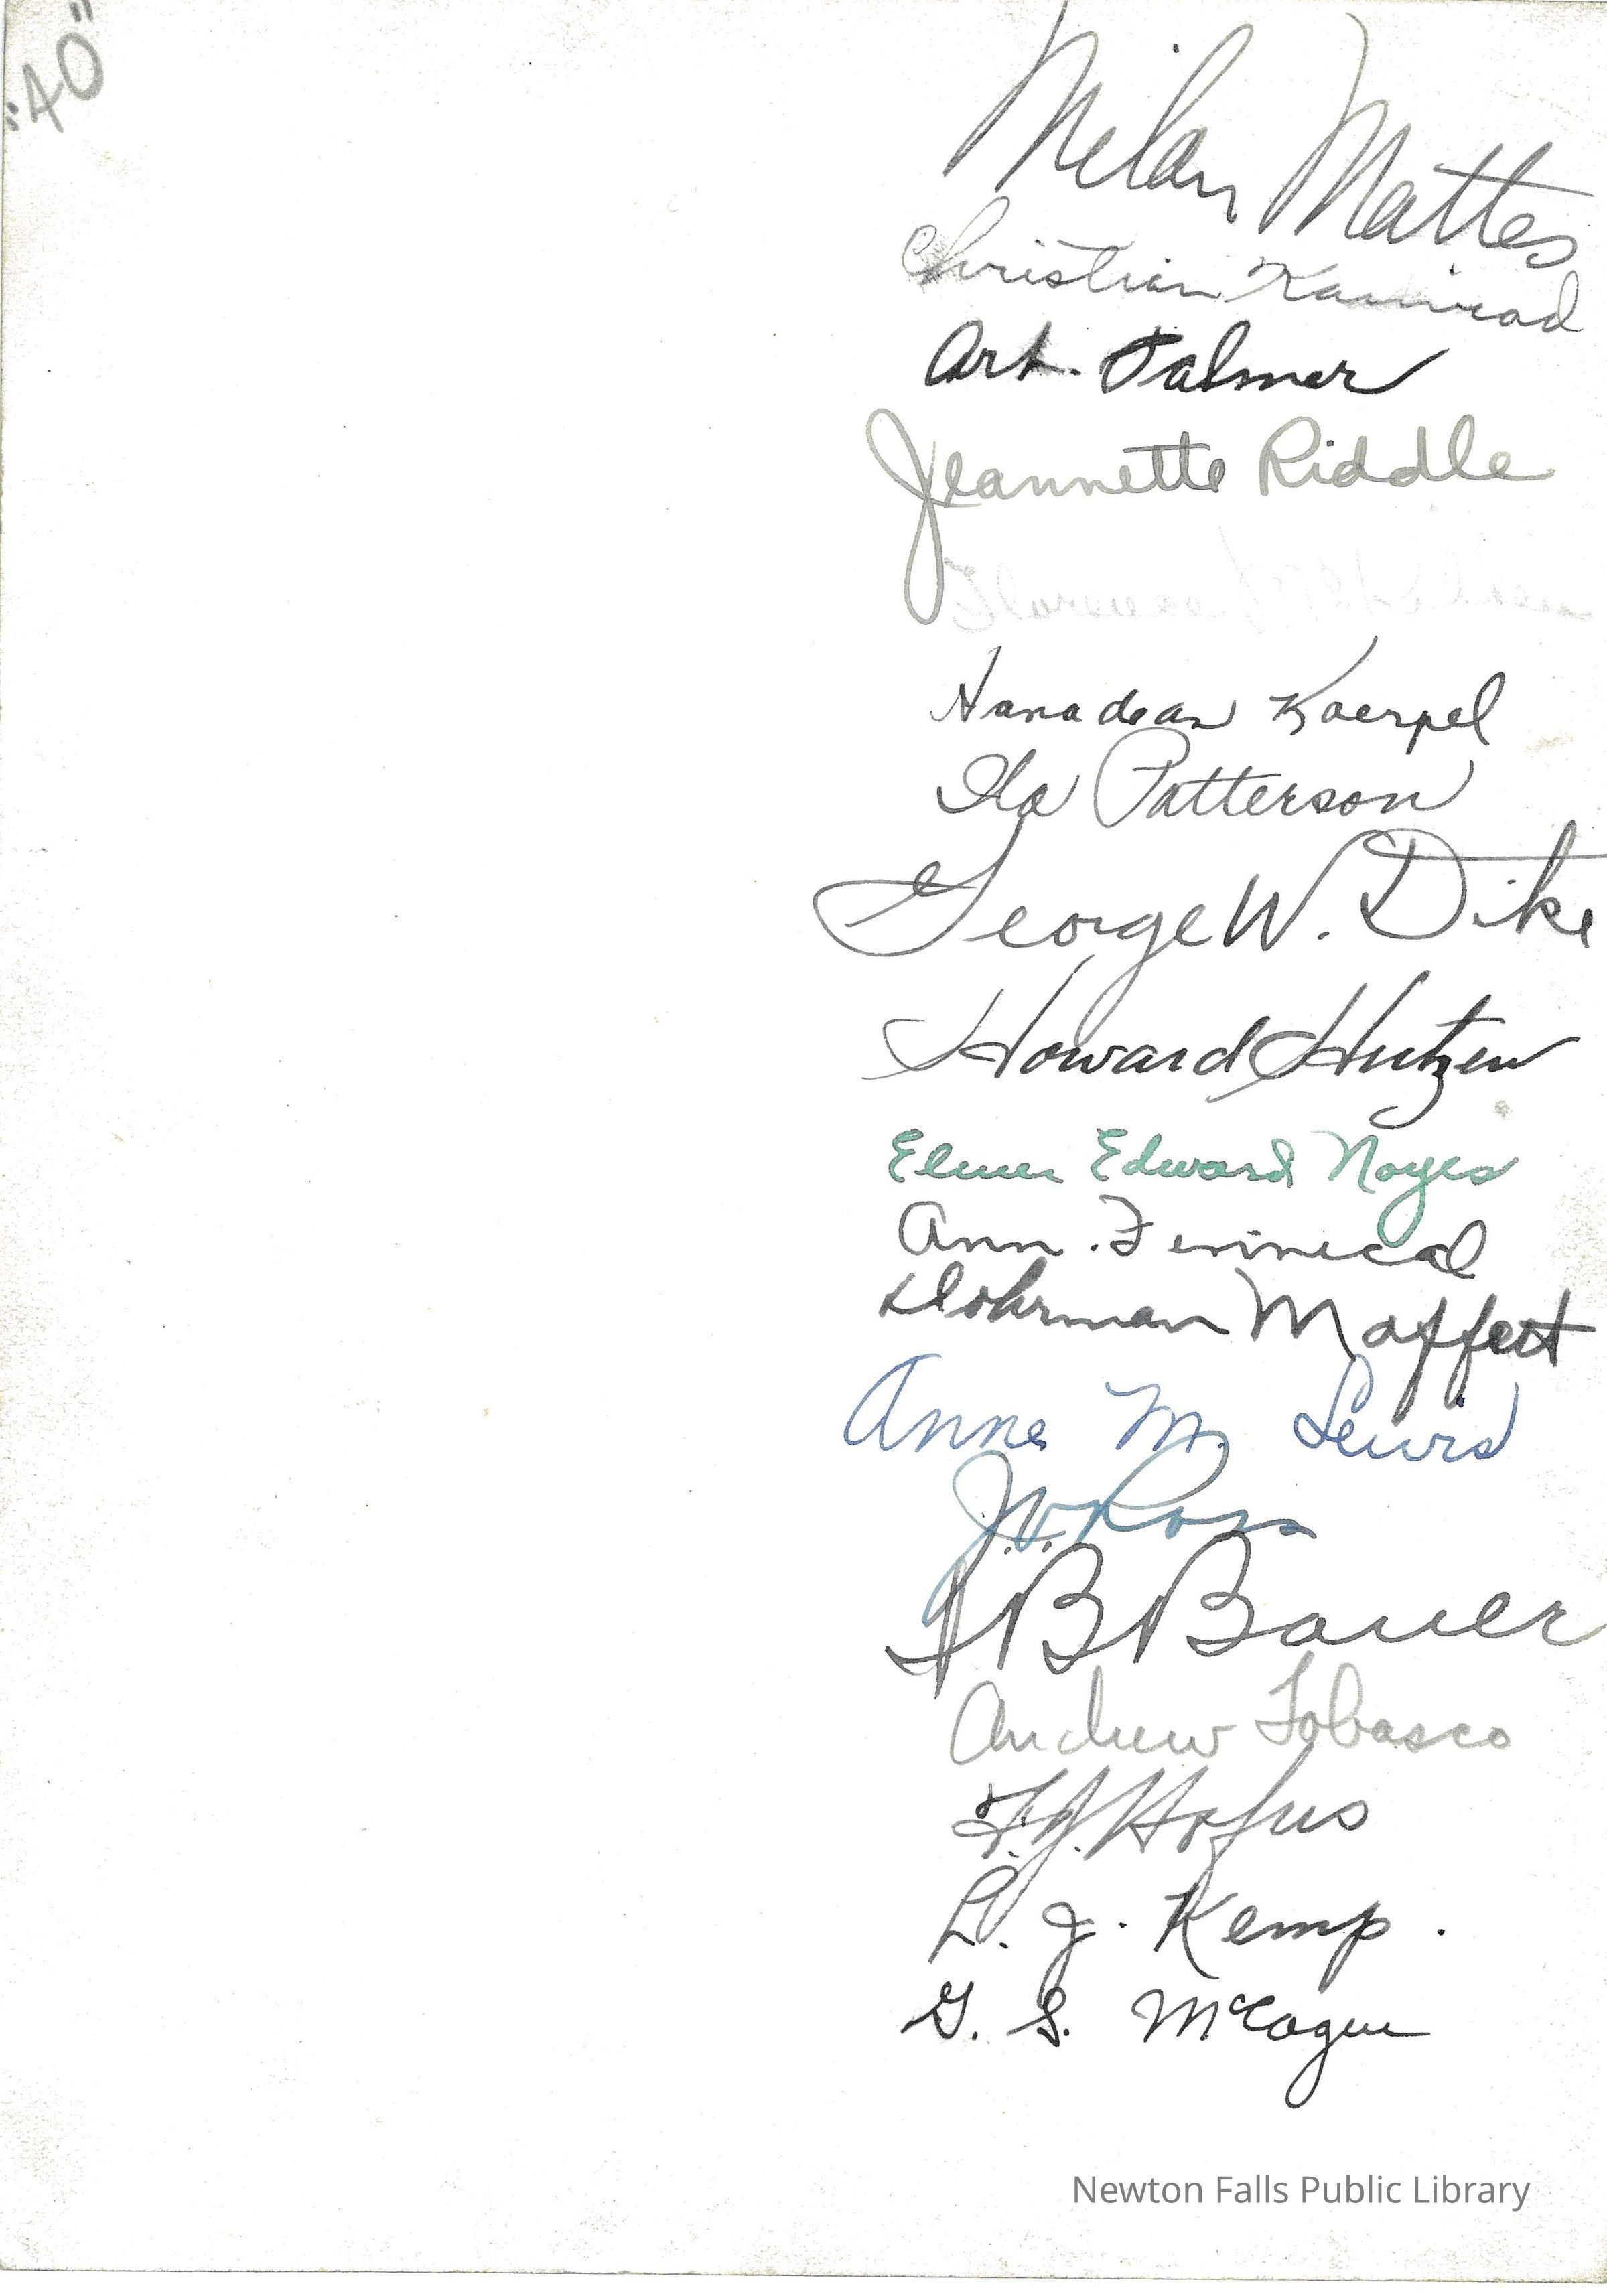 "40"
Milan Mattes
Christian
Art. Palmer
Jeannette Riddle
Florence
Hanadean Koerpel
Ila Patterson
George W. Dike
Howard Hutzen
Elmer Edward Noyes
Ann. Fennical
Dohrman Moffett
Anne M. Lewis
J. V. Ross
Bauer
Andrew Tobasco
F. J. Hofus
L. J. Kemp.
G. S. McCague
Newton Falls Public Library